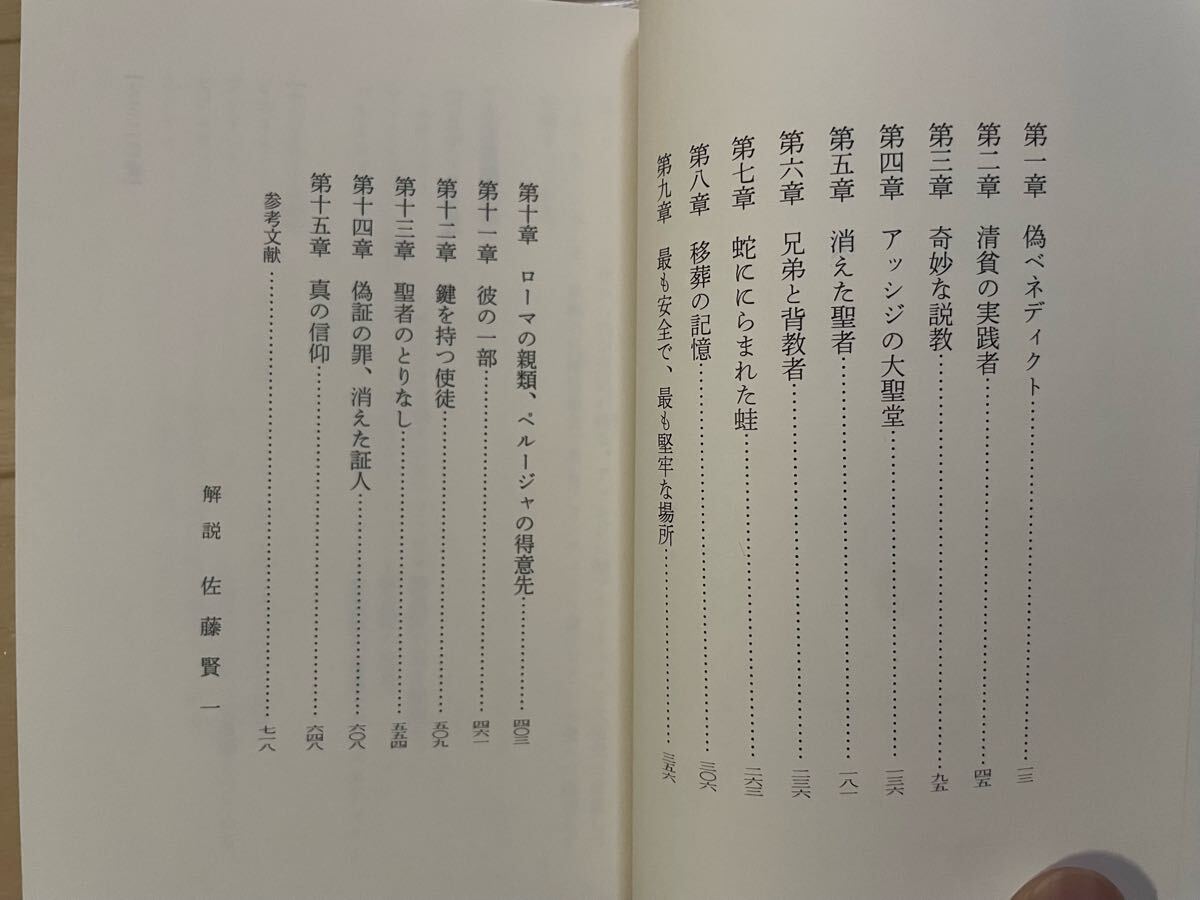 第一章　偽ベネディクト……………………一三
第二章　清貧の実践者……………………四五
第三章　奇妙な説教……………………九五
第四章　アッシジの大聖堂……………………一三六
第五章　消えた聖者……………………一八一
第六章　兄弟と背教者……………………二三六
第七章　蛇ににらまれた蛙……………………二六三
第八章　移葬の記憶……………………三〇六
第九章　最も安全で、最も堅牢な場所……………………三五六
第十章　ローマの親類、ペルージャの得意先……………………四〇三
第十一章　彼の一部……………………四六一
第十二章　鍵を持つ使徒……………………五〇九
第十三章　聖者のとりなし……………………五五四
第十四章　偽証の罪、消えた証人……………………六〇八
第十五章　真の信仰……………………六四八
参考文献……………………七一八
解説　佐藤賢一